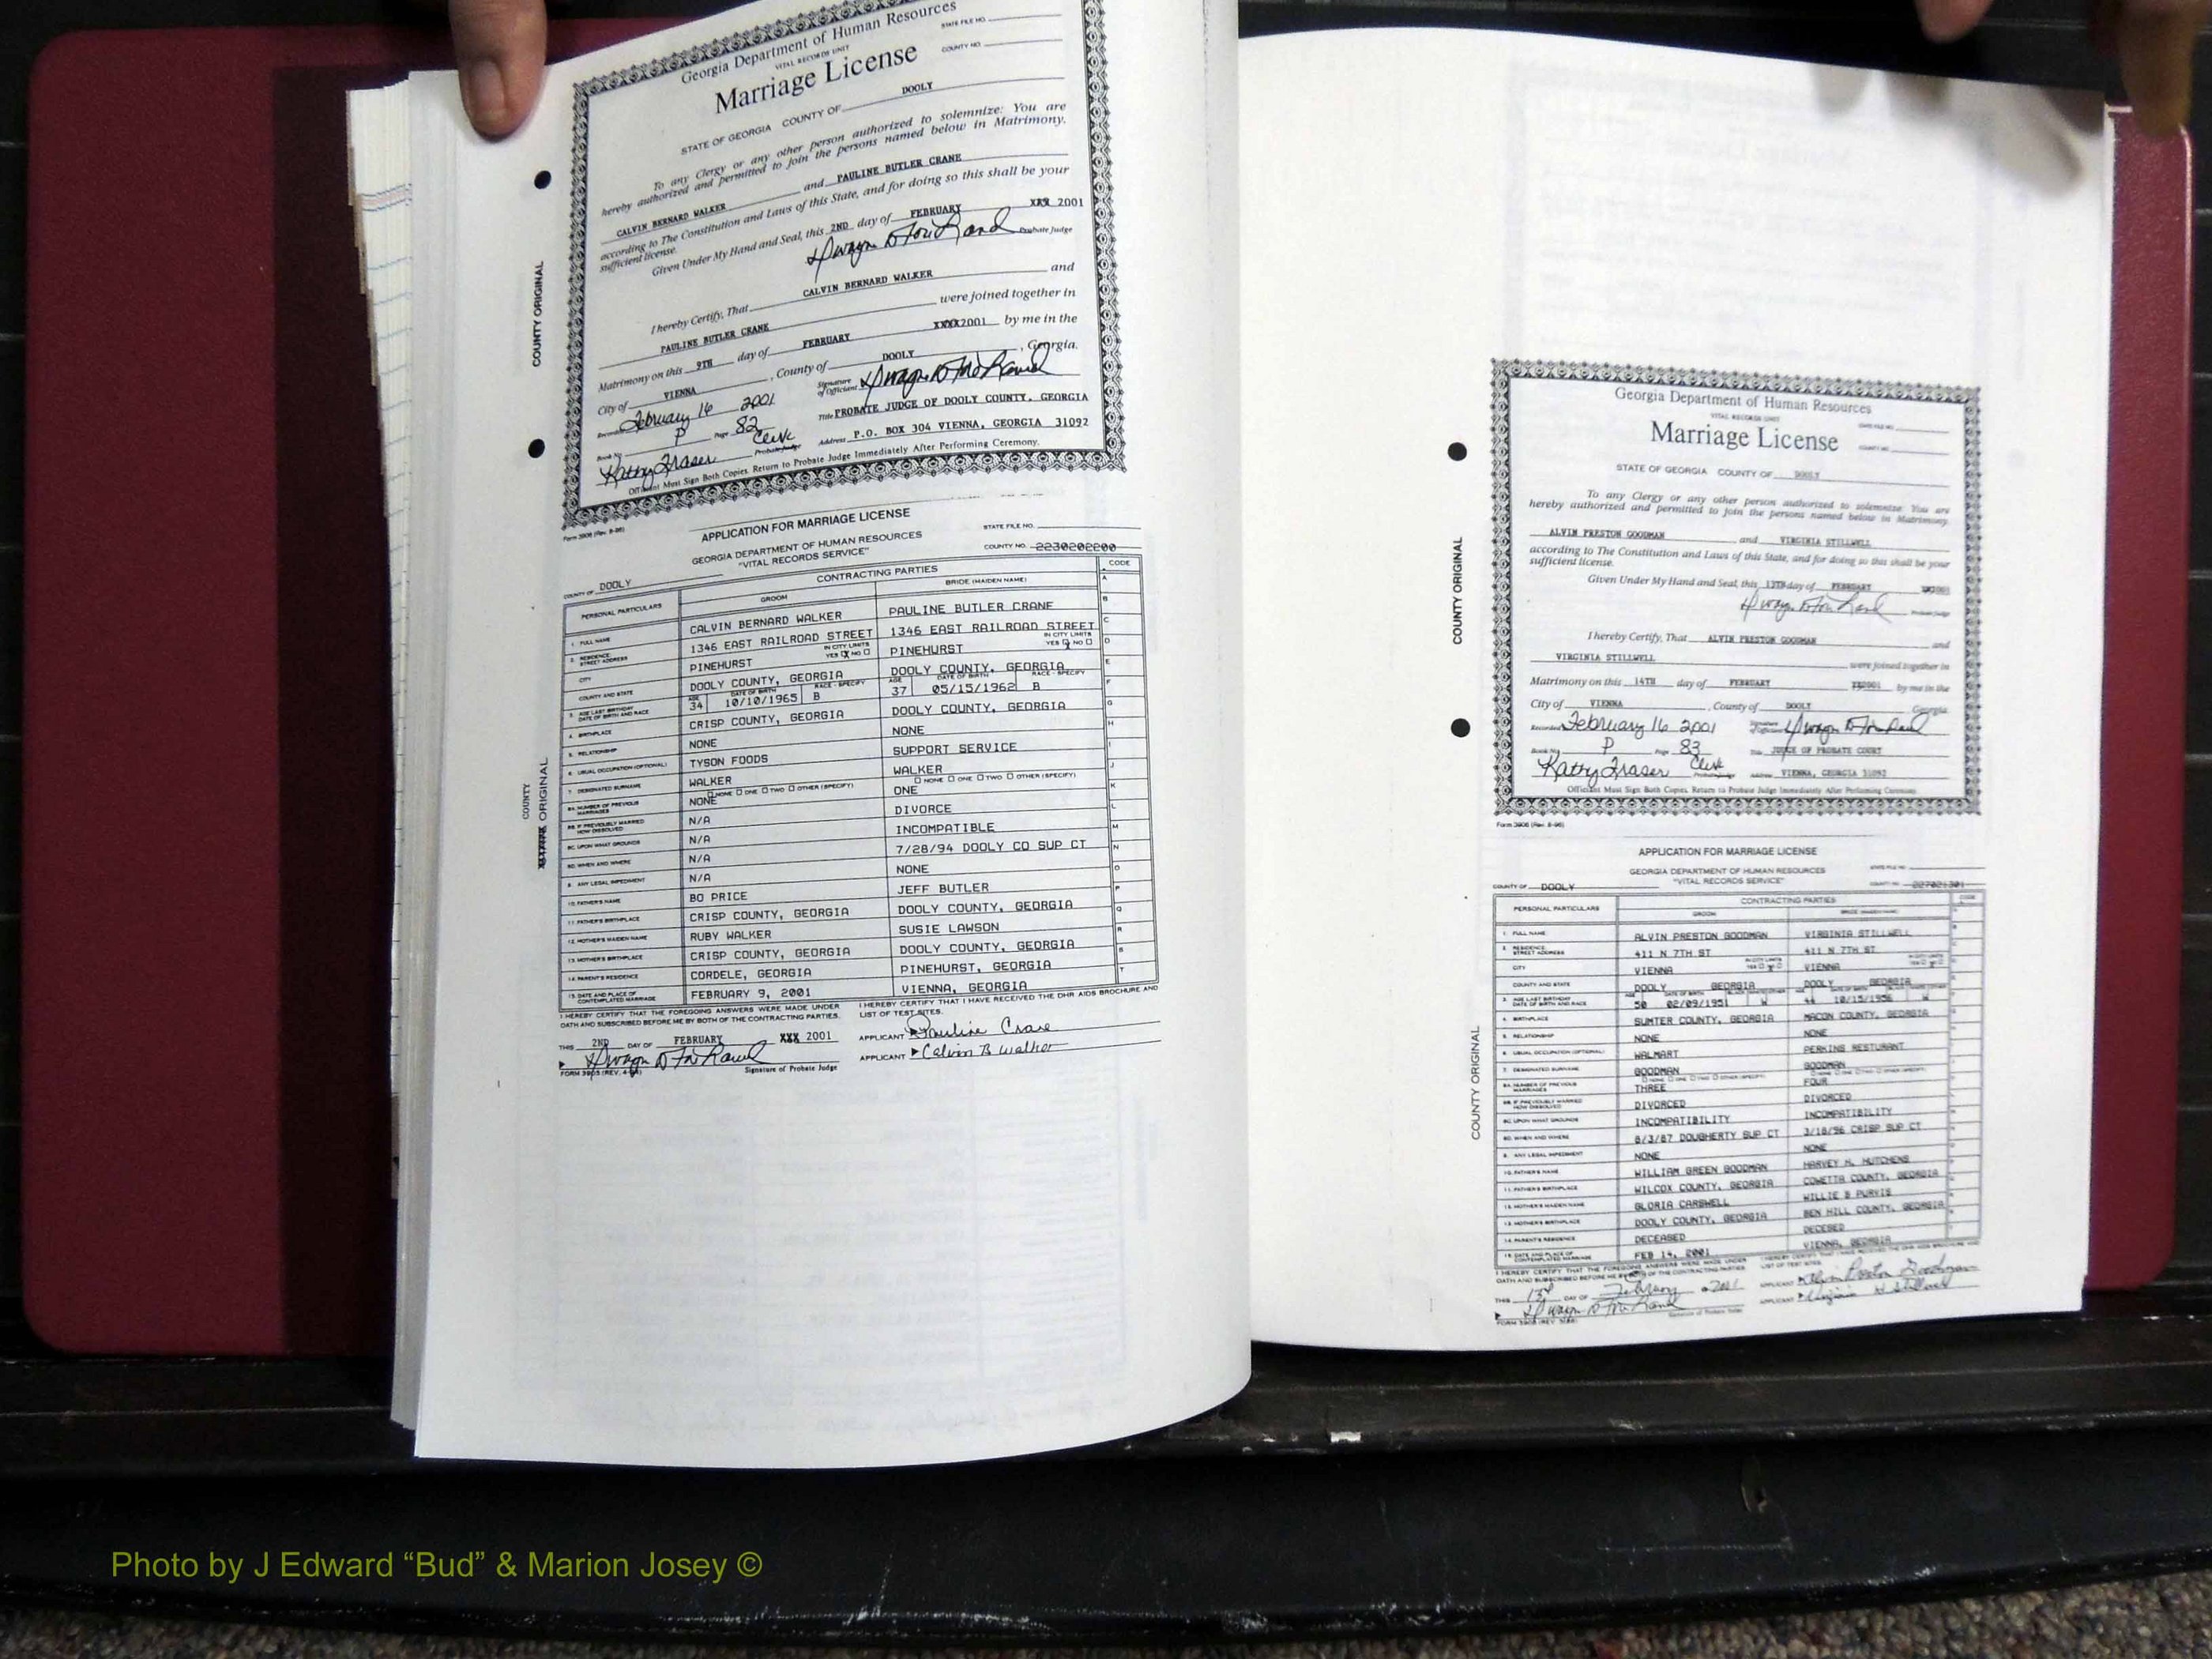 Georgia Department of Human Resources
VITAL RECORDS UNIT
STATE FILE NO.
Marriage License
COUNTY NO.
STATE OF GEORGIA COUNTY OF DOOLY
To any Clergy or any other person authorized to solemnize: You are
hereby authorized and permitted to join the persons named below in Matrimony.
CALVIN BERNARD WALKER and PAULINE BUTLER CRANE
according to The Constitution and Laws of this State, and for doing so this shall be your
sufficient license.
Given Under My Hand and Seal, this 2ND day of FEBRUARY XXX 2001
Probate Judge
I hereby Certify, That CALVIN BERNARD WALKER and
PAULINE BUTLER CRANE were joined together in
Matrimony on this 9TH day of FEBRUARY XXXX2001 by me in the
City of VIENNA, County of DOOLY, Georgia.
Recorded February 16 2001 Signature of Officiant
Book No. P Page 82 Title PROBATE JUDGE OF DOOLY COUNTY, GEORGIA
Kathy Fraser Clerk Probate Judge Address P.O. BOX 304 VIENNA, GEORGIA 31092
Officiant Must Sign Both Copies. Return to Probate Judge Immediately After Performing Ceremony.
Form 3906 (Rev. 8-96)
COUNTY ORIGINAL
APPLICATION FOR MARRIAGE LICENSE
GEORGIA DEPARTMENT OF HUMAN RESOURCES
"VITAL RECORDS SERVICE"
STATE FILE NO.
COUNTY NO. 2230202200
COUNTY OF DOOLY
PERSONAL PARTICULARS CONTRACTING PARTIES CODE
GROOM BRIDE (MAIDEN NAME)
1. FULL NAME CALVIN BERNARD WALKER PAULINE BUTLER CRANE
2. RESIDENCE: STREET ADDRESS 1346 EAST RAILROAD STREET 1346 EAST RAILROAD STREET
CITY PINEHURST IN CITY LIMITS YES NO PINEHURST IN CITY LIMITS YES NO
COUNTY AND STATE DOOLY COUNTY, GEORGIA DOOLY COUNTY, GEORGIA
3. AGE LAST BIRTHDAY DATE OF BIRTH AND RACE 34 10/10/1965 B 37 05/15/1962 B
4. BIRTHPLACE CRISP COUNTY, GEORGIA DOOLY COUNTY, GEORGIA
5. RELATIONSHIP NONE NONE
6. USUAL OCCUPATION (OPTIONAL) TYSON FOODS SUPPORT SERVICE
7. DESIGNATED SURNAME WALKER WALKER
8A. NUMBER OF PREVIOUS MARRIAGES NONE ONE
8B. IF PREVIOUSLY MARRIED HOW DISSOLVED N/A DIVORCE
8C. UPON WHAT GROUNDS N/A INCOMPATIBLE
8D. WHEN AND WHERE N/A 7/28/94 DOOLY CO SUP CT
9. ANY LEGAL IMPEDIMENT N/A NONE
10. FATHER'S NAME BO PRICE JEFF BUTLER
11. FATHER'S BIRTHPLACE CRISP COUNTY, GEORGIA DOOLY COUNTY, GEORGIA
12. MOTHER'S MAIDEN NAME RUBY WALKER SUSIE LAWSON
13. MOTHER'S BIRTHPLACE CRISP COUNTY, GEORGIA DOOLY COUNTY, GEORGIA
14. PARENT'S RESIDENCE CORDELE, GEORGIA PINEHURST, GEORGIA
15. DATE AND PLACE OF CONTEMPLATED MARRIAGE FEBRUARY 9, 2001 VIENNA, GEORGIA
I HEREBY CERTIFY THAT THE FOREGOING ANSWERS WERE MADE UNDER
OATH AND SUBSCRIBED BEFORE ME BY BOTH OF THE CONTRACTING PARTIES.
I HEREBY CERTIFY THAT I HAVE RECEIVED THE DHR AIDS BROCHURE AND
LIST OF TEST SITES.
THIS 2ND DAY OF FEBRUARY XXX 2001
APPLICANT Pauline Crane
APPLICANT Calvin B Walker
Signature of Probate Judge
COUNTY
ORIGINAL
Georgia Department of Human Resources
VITAL RECORDS UNIT
STATE FILE NO.
Marriage License
COUNTY NO.
STATE OF GEORGIA COUNTY OF DOOLY
To any Clergy or any other person authorized to solemnize: You are
hereby authorized and permitted to join the persons named below in Matrimony.
ALVIN PRESTON GOODMAN and VIRGINIA STILLWELL
according to The Constitution and Laws of this State, and for doing so this shall be your
sufficient license.
Given Under My Hand and Seal, this 13TH day of FEBRUARY XX2001
Probate Judge
I hereby Certify, That ALVIN PRESTON GOODMAN and
VIRGINIA STILLWELL were joined together in
Matrimony on this 14TH day of FEBRUARY XX2001 by me in the
City of VIENNA, County of DOOLY Georgia.
Recorded February 16 2001 Signature of Officiant
Book No. P Page 83 Title JUDGE OF PROBATE COURT
Kathy Fraser Clerk Probate Judge Address VIENNA, GEORGIA 31092
Officiant Must Sign Both Copies. Return to Probate Judge Immediately After Performing Ceremony.
Form 3906 (Rev. 8-96)
COUNTY ORIGINAL
APPLICATION FOR MARRIAGE LICENSE
GEORGIA DEPARTMENT OF HUMAN RESOURCES
"VITAL RECORDS SERVICE"
STATE FILE NO.
COUNTY NO.
COUNTY OF DOOLY
PERSONAL PARTICULARS CONTRACTING PARTIES CODE
GROOM BRIDE (MAIDEN NAME)
1. FULL NAME ALVIN PRESTON GOODMAN VIRGINIA STILLWELL
2. RESIDENCE STREET ADDRESS 411 N 7TH ST 411 N 7TH ST
CITY VIENNA VIENNA
COUNTY AND STATE DOOLY GEORGIA DOOLY GEORGIA
3. AGE LAST BIRTHDAY DATE OF BIRTH AND RACE 50 02/09/1951 W 44 10/15/1956 W
4. BIRTHPLACE SUMTER COUNTY, GEORGIA MACON COUNTY, GEORGIA
5. RELATIONSHIP NONE NONE
6. USUAL OCCUPATION (OPTIONAL) WALMART PERKINS RESTURANT
7. DESIGNATED SURNAME GOODMAN GOODMAN
8A. NUMBER OF PREVIOUS MARRIAGES THREE FOUR
8B. IF PREVIOUSLY MARRIED HOW DISSOLVED DIVORCED DIVORCED
8C. UPON WHAT GROUNDS INCOMPATIBILITY INCOMPATIBILITY
8D. WHEN AND WHERE 8/3/87 DOUGHERTY SUP CT 3/18/96 CRISP SUP CT
9. ANY LEGAL IMPEDIMENT NONE NONE
10. FATHER'S NAME WILLIAM GREEN GOODMAN HARVEY H. HUTCHENS
11. FATHER'S BIRTHPLACE WILCOX COUNTY, GEORGIA COWETTA COUNTY, GEORGIA
12. MOTHER'S MAIDEN NAME GLORIA CARSWELL WILLIE B PURVIS
13. MOTHER'S BIRTHPLACE DOOLY COUNTY, GEORGIA BEN HILL COUNTY, GEORGIA
14. PARENT'S RESIDENCE DECEASED DECESED
15. DATE AND PLACE OF CONTEMPLATED MARRIAGE FEB 14, 2001 VIENNA, GEORGIA
I HEREBY CERTIFY THAT THE FOREGOING ANSWERS WERE MADE UNDER
OATH AND SUBSCRIBED BEFORE ME BY BOTH OF THE CONTRACTING PARTIES
LIST OF TEST SITES.
THIS 13th DAY OF February 2001
APPLICANT Alvin Preston Goodman
APPLICANT Virginia H Stillwell
COUNTY ORIGINAL
Photo by J Edward “Bud” & Marion Josey ©